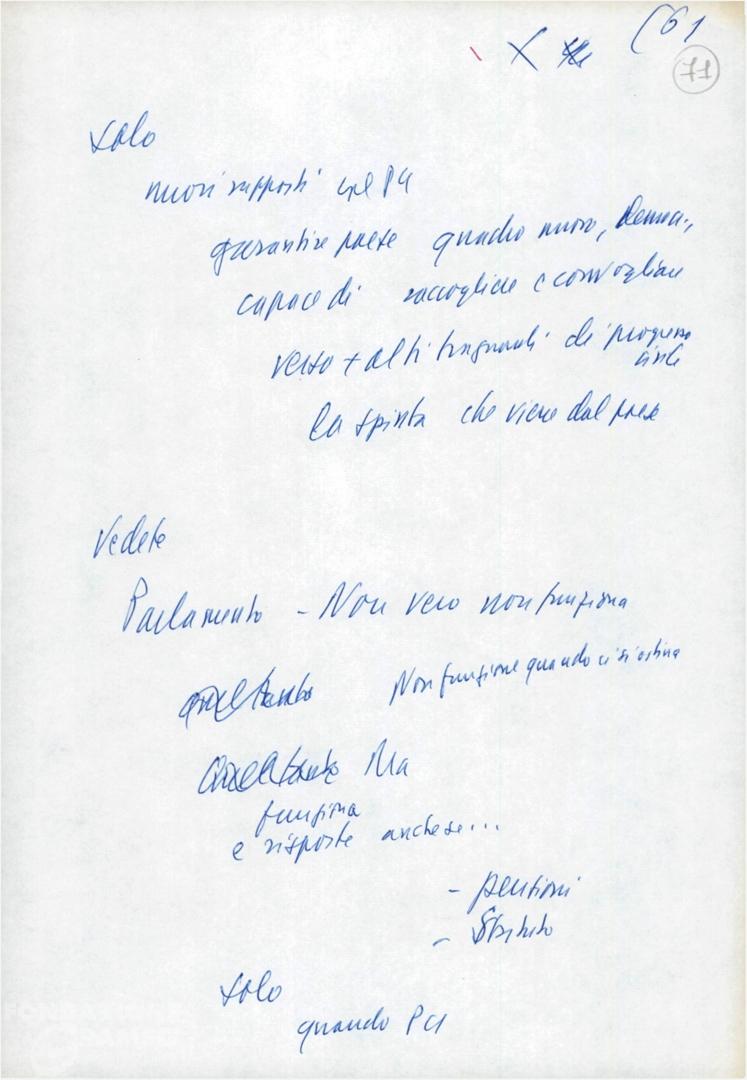 (61
71
X
solo
nuovi rapporti col PCI
garantire paese quadro nuovo, Democ.,
capace di raccogliere e convogliare
verso + alti traguardi di progresso
civile
la spinta che viene dal paese
Vedete
Parlamento - Non vero non funziona
Non funziona quando ci si ostina
Ma
funziona
e risposte anche se...
- pensioni
- Statuto
solo
quando PCI